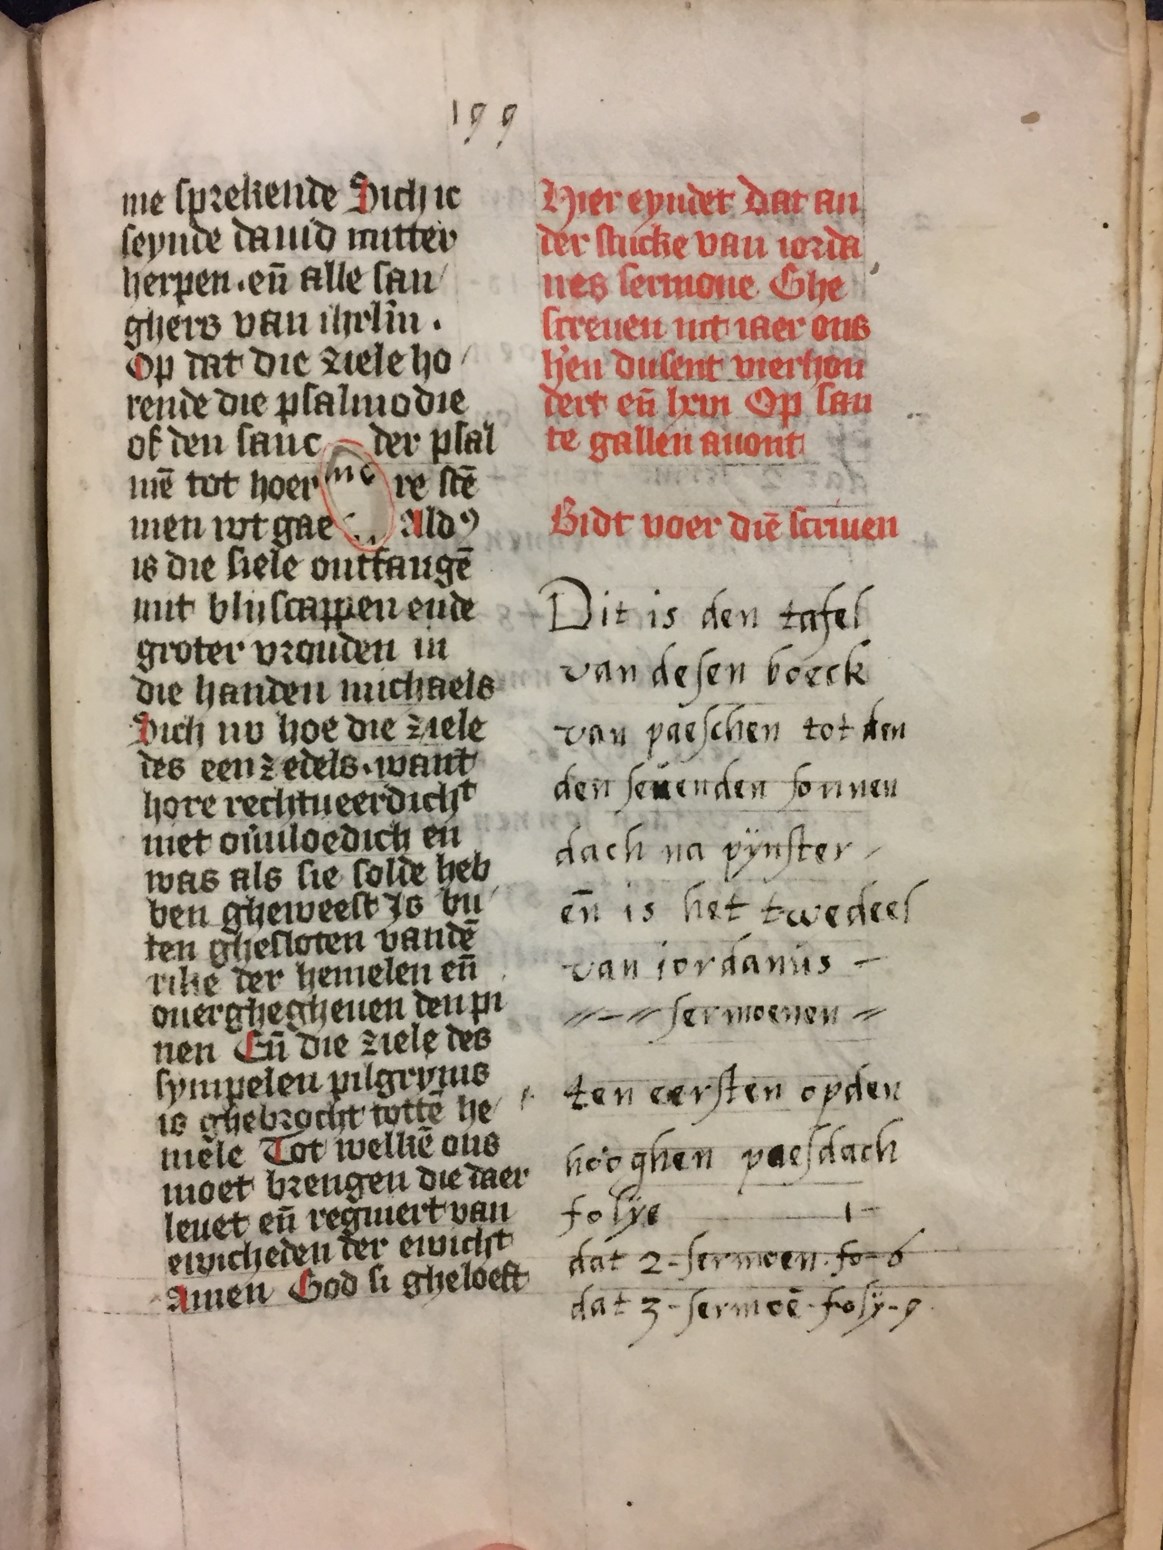 199
me sprekende Sich ic
seynde dauid mitter
herpen · eñ alle san
ghers van ihrlm̄ ·
Op dat die ziele ho
rende die psalmodie
of den sanc der psal
mē tot hoer re stē
men wt gae Ald⁹
is die siele ontfangē
mit blijscappen ende
groter vrouden in
die handen michaels
Sich nv hoe die ziele
des een zedels · want
hore rechtueerdicht
niet ou̅vloedich en
was als sie solde heb
ben gheweest Is bu
ten ghesloten vandē
rike der hemelen eñ
ouerghegheuen den pi
nen Eñ die ziele des
sympelen pilgryms
is ghebrocht tottē he
mēle Tot welkē ons
moet brengen die daer
leuet eñ regniert van
ewicheden der ewicht
Amen God si gheloeft
Hier eyndet dat an
der stucke van iorda
nes sermone Ghe
screuen int iaer ons
hēn dusent vierhon
dert eñ lxiii Op san
te gallen auont
Bidt voer diē scriuen
Dit is den tafel
van desen boeck
van paeschen tot den
den seuenden sonnen
dach na pÿnster
en̄ is het twedeel
van iordanus –
sermoenen
ten eersten opden
hooghen paesdach
folÿe 1
dat 2 - sermoen · fo - 6
dat 3 - sermoē · folÿ - 9